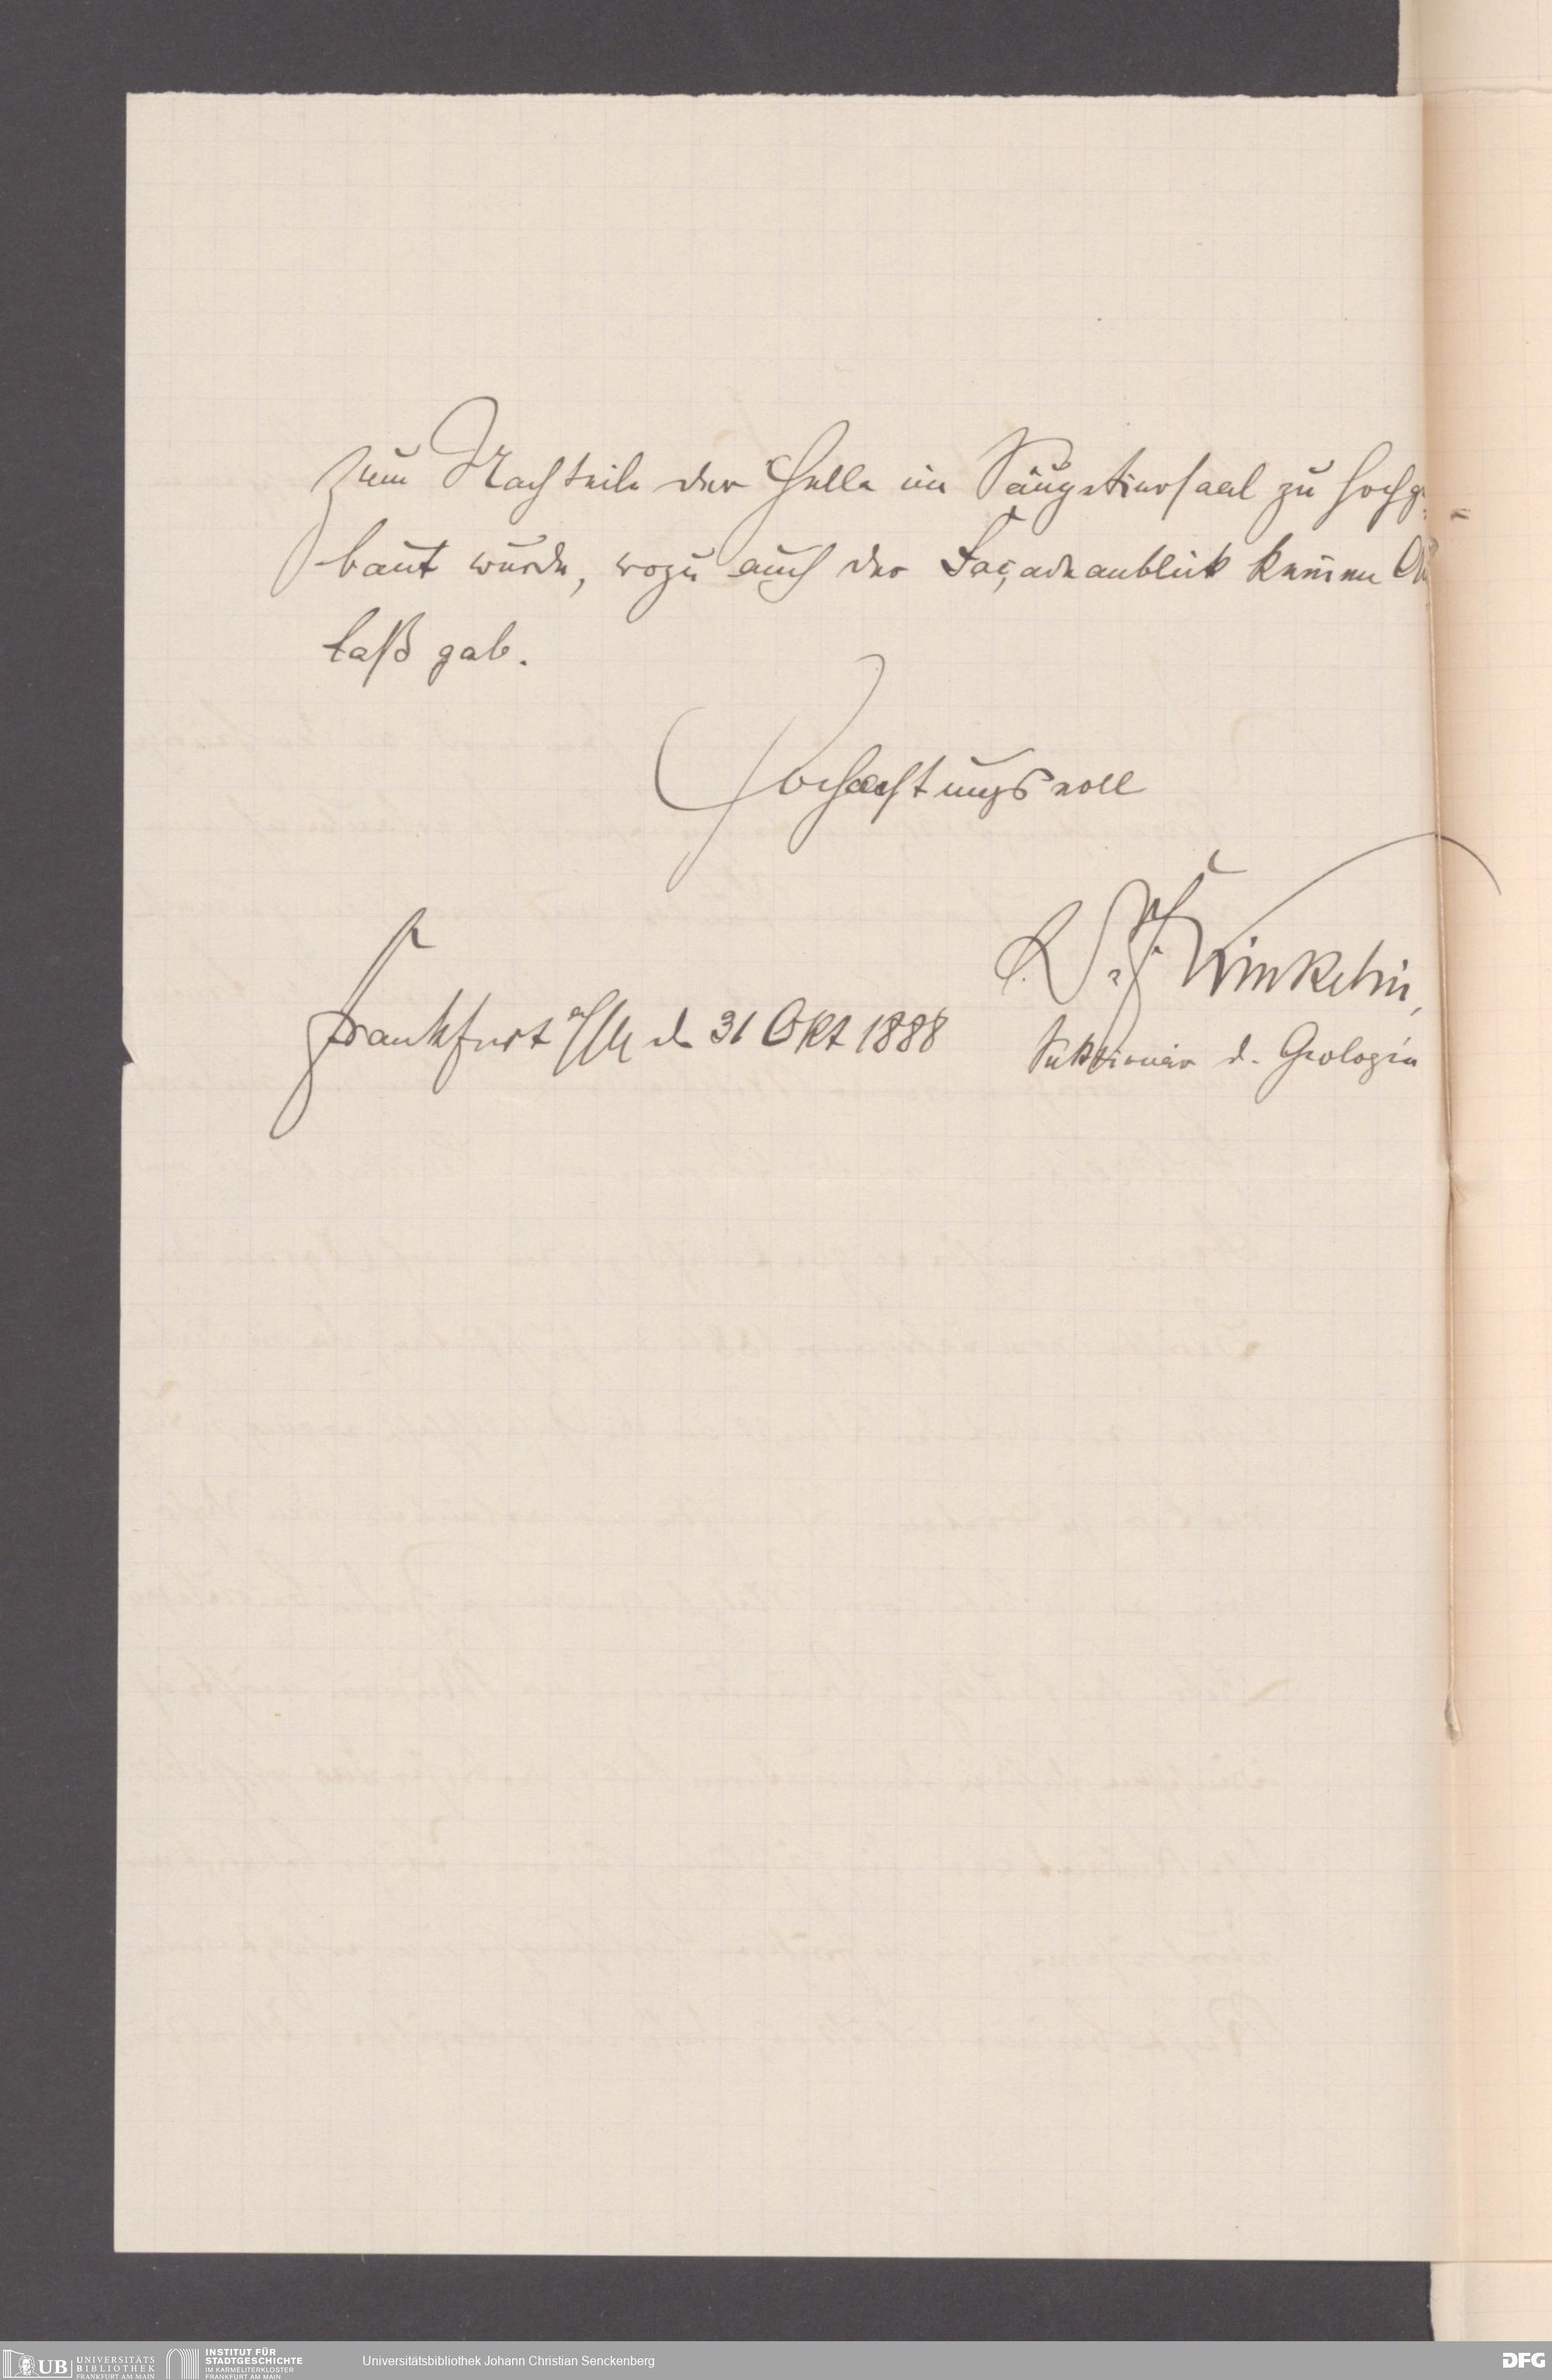 zum Nachteile der Helle im Säugetiersaal zu hochge-
baut wurde, wozu auch der Façadeanblick keinen An
laß gab.
Hochachtungsvoll
Dr. F. Kinkelin,
Frankfurt a/M d. 31 Okt 1888
Sektionär d. Geologie
UB UNIVERSITÄTS
BIBLIOTHEK
FRANKFURT AM MAIN
INSTITUT FÜR
STADTGESCHICHTE
IM KARMELITERKLOSTER
FRANKFURT AM MAIN
Universitätsbibliothek Johann Christian Senckenberg
DFG